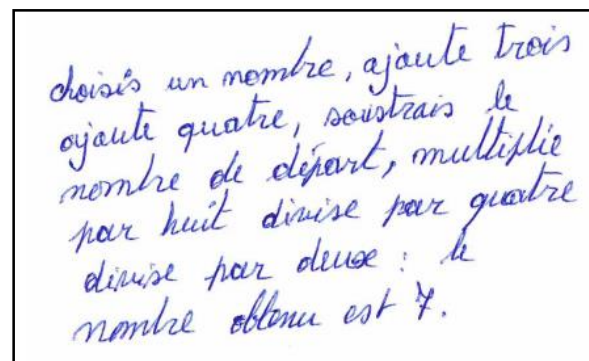 choisis un nombre, ajoute trois
ajoute quatre, soustrais le
nombre de départ, multiplie
par huit divise par quatre
divise par deux : le
nombre obtenu est 7.